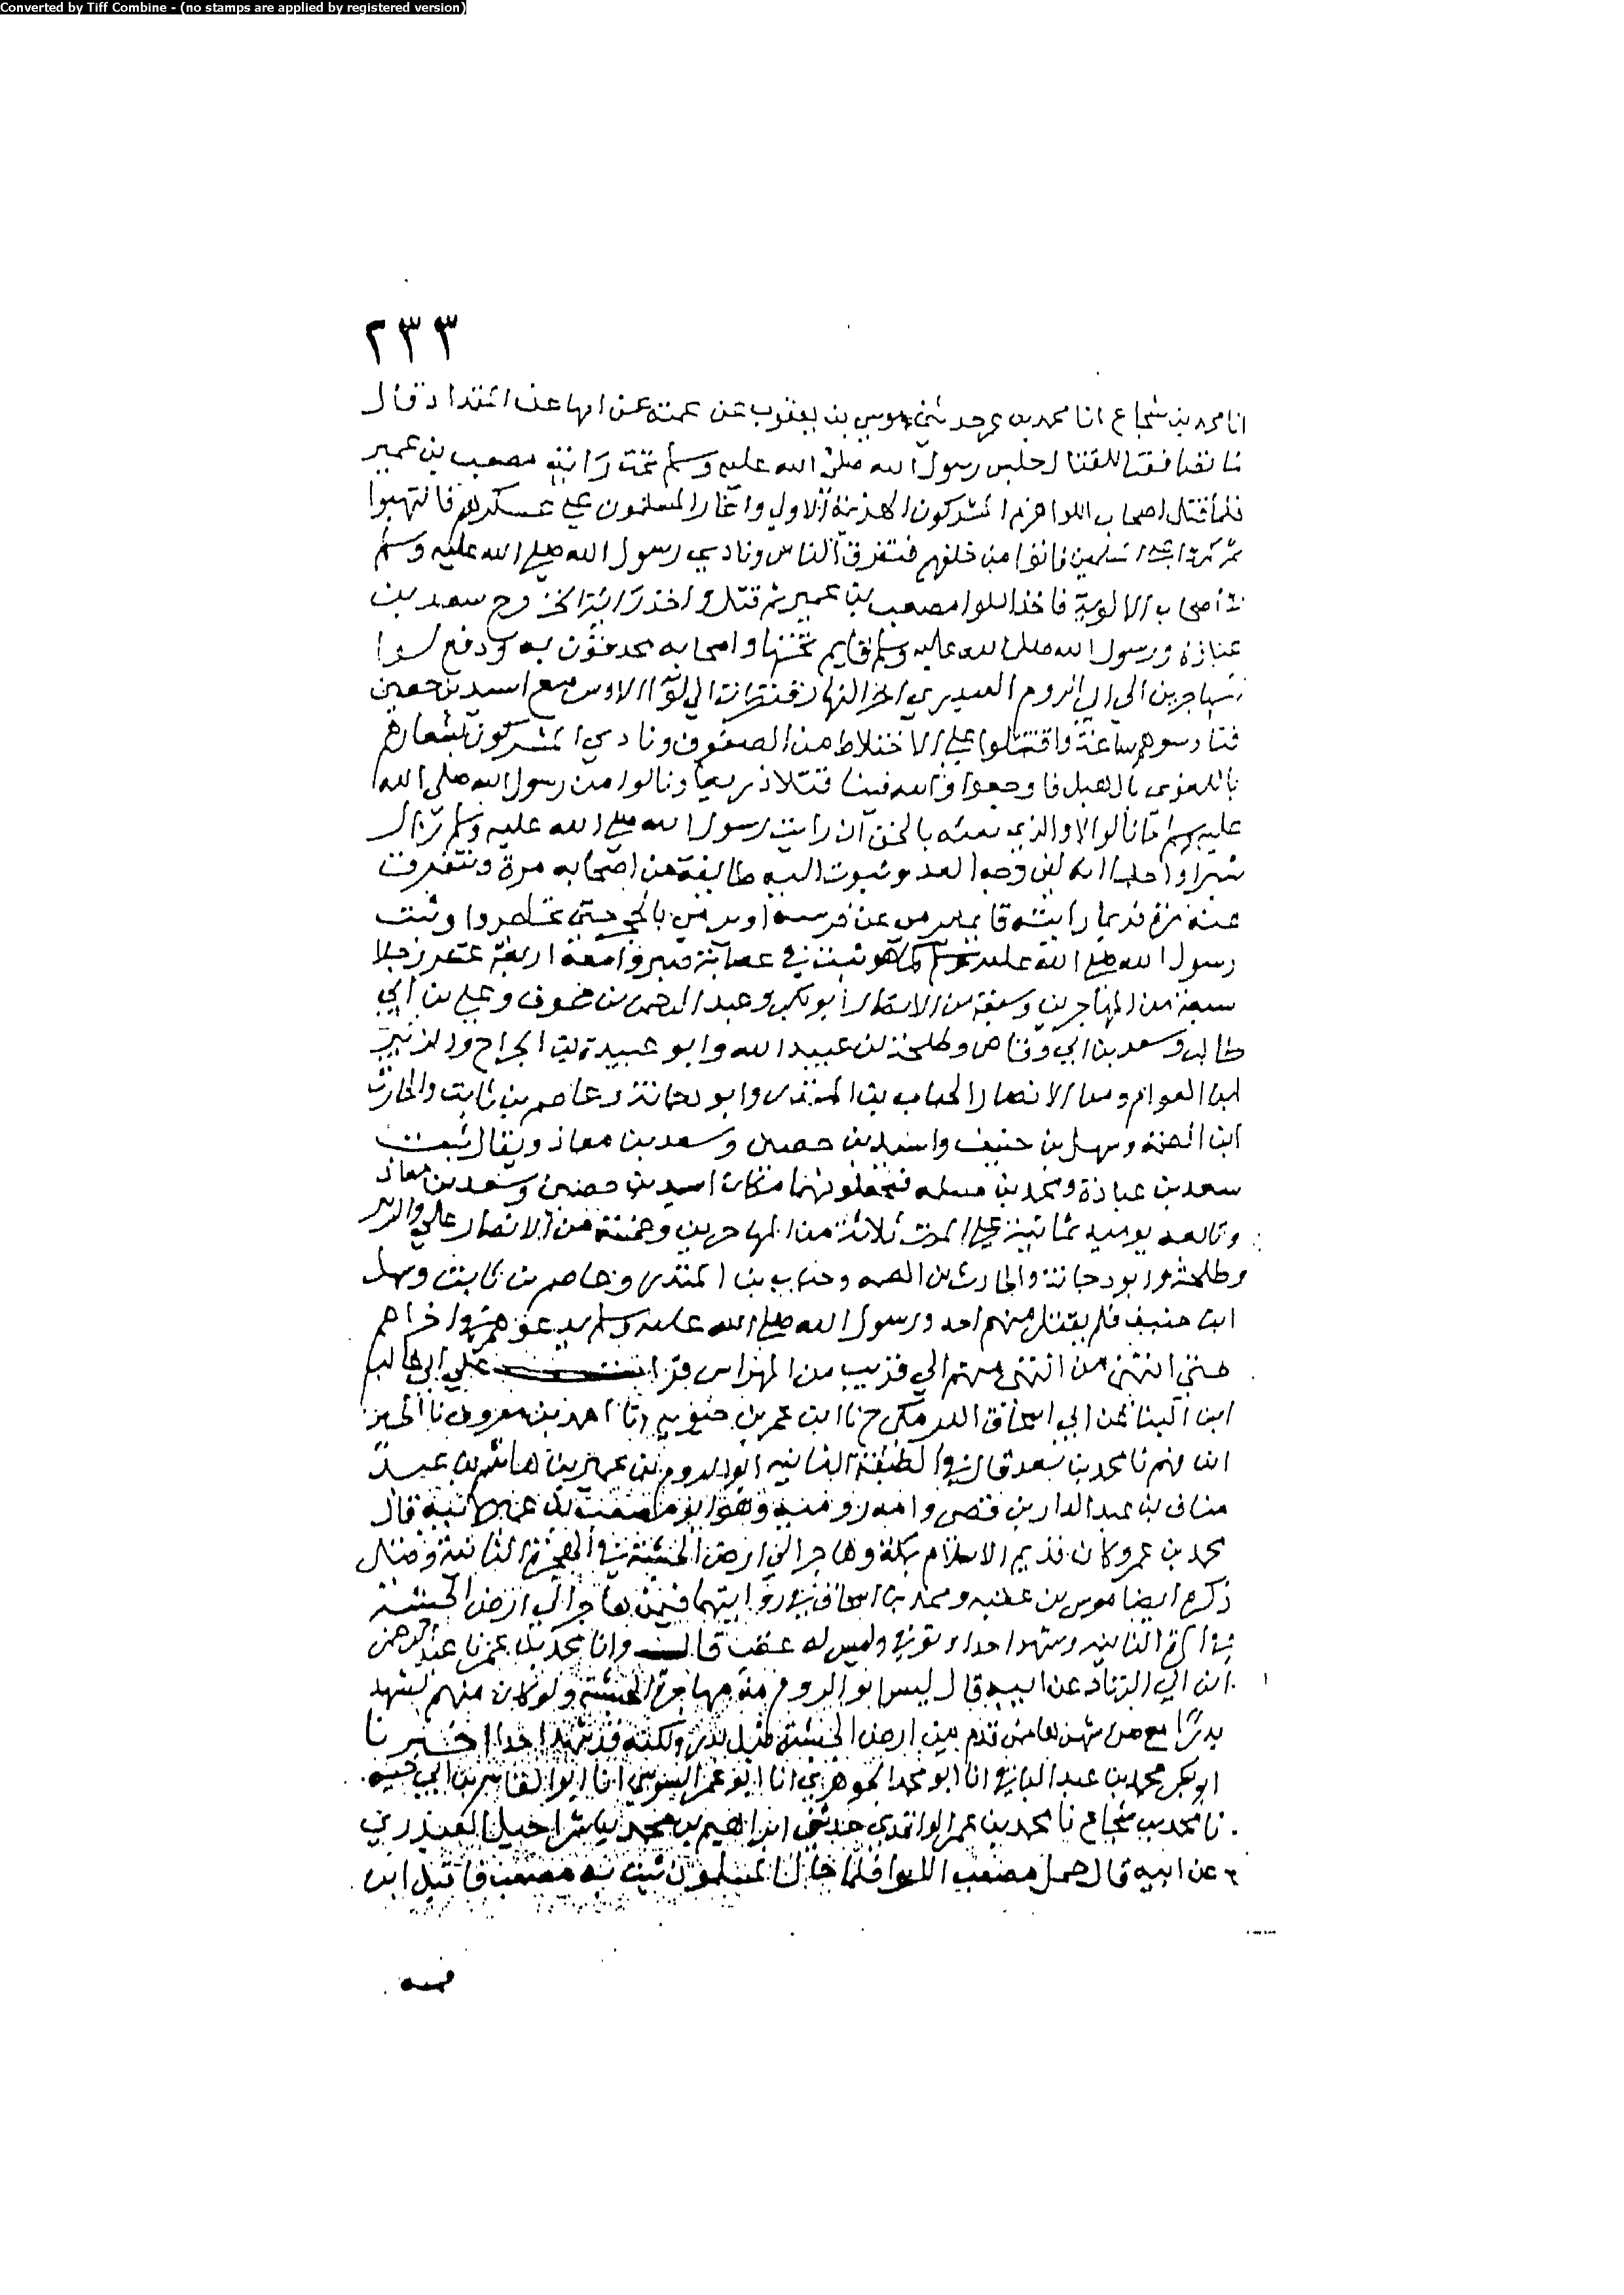 Converted by Tiff Combine - (no stamps are applied by registered version)
٢٣٣
انا محمد بن شجاع انا محمد بن عمر حدثني موسى بن يعقوب عن عمته عن امها عن المقداد قال
لما تصاففنا للقتال جلس رسول الله صلى الله عليه وسلم تحت راية مصعب بن عمير
فلما قتل اصحاب اللوا هزم المشركون الهزيمة الاولى واغار المسلمون على عسكرهم فانتهبوا
ثم كروا على المسلمين فاتوا من خلفهم فتفرق الناس ونادى رسول الله صلى الله عليه وسلم
في اصحاب الالوية فاخذ اللوا مصعب بن عمير ثم قتل واخذ راية الخزرج سعد بن
عبادة ورسول الله صلى الله عليه وسلم قايم تحتها واصحابه محدقون به ودفع لوا
المهاجرين الى ابي الروم العبدري اخر النهار فنظرت الى لوا الاوس مع اسيد بن حضين
فناوشوهم ساعة واقتتلوا على الاختلاط من الصفوف ونادى المشركون بشعارهم
ياللعزى يا لهبل فاوجعوا والله فينا قتلا ذريعا ونالوا من رسول الله صلى الله
عليه وسلم ما نالوا لا والذي بعثه بالحق ان رايت رسول الله صلى الله عليه وسلم زال
شبرا واحدا انه لفي وجه العدو وتثوب اليه طايفة من اصحابه مرة وتتفرق
عنه مرة فربما رايته قايما يرمي عن قوسه او يرمي بالحجر حتى تحاجزوا وثبت
رسول الله صلى الله عليه وسلم كما هو ثبت في عصابة صبروا معه اربعة عشر رجلا
سبعة من المهاجرين وسبعة من الانصار ابو بكر وعبد الرحمن بن عوف وعلي بن ابي
طالب وسعد بن ابي وقاص وطلحة بن عبيد الله وابو عبيدة بن الجراح والزبير
ابن العوام ومن الانصار الحباب بن المنذر وابو دجانة وعاصم بن ثابت والحارث
ابن الصمة وسهل بن حنيف واسيد بن حضين وسعد بن معاذ ويقال ثبت
سعد بن عبادة ومحمد بن مسلمه فيجعلونهما مكان اسيد بن حضين وسعد بن معاذ
وبايعه يوميد ثمانية على الموت ثلاثة من المهاجرين وخمسة من الانصار علي والزبير
وطلحة وابو دجانة والحارث بن الصمه وحباب بن المنذر وعاصم بن ثابت وسهل
ابن حنيف فلم يقتل منهم احد ورسول الله صلى الله عليه وسلم يدعوهم في اخراهم
حتى انتهى من انتهى منهم الى قريب من المهراس قرات على ابي غالب
ابن البنا عن ابي اسحاق البرمكي ح نا ابن عمر بن حيويه انا احمد بن معروف نا الحسين
ابن فهم نا محمد بن سعد قال في الطبقة الثانيه ابو الروم بن عمير بن هاشم بن عبد
مناف بن عبد الدار بن قصي وامه روميه وهو اخو مصعب بن عمير لابيه قال
محمد بن عمر وكان قديم الاسلام بمكة وهاجر الى ارض الحبشة في الهجرة الثانية
ذكره ايضا موسى بن عقبه ومحمد بن اسحاق في روايتهما فيمن هاجر الى ارض الحبشة
في الهجرة الثانيه وشهد احدا وتوفي وليس له عقب قال وانا محمد بن عمر نا عبد الرحمن
ابن ابي الزناد عن ابيه قال ليس ابو الروم من مهاجرة الحبشة ولو كان منهم لشهد
بدرا مع من شهدها ممن قدم من ارض الحبشة قبل بدر ولكنه قد شهد احدا اخبرنا
ابو بكر محمد بن عبد الباقي انا ابو محمد الجوهري انا ابو عمر انا ابو القاسم بن ابي حيه
نا محمد بن شجاع نا محمد بن عمر الواقدي حدثني ابراهيم بن محمد بن شراحيل العبدري
عن ابيه قال حمل مصعب اللوا فلما جال المسلمون ثبت به مصعب فاقبل ابن
قميه